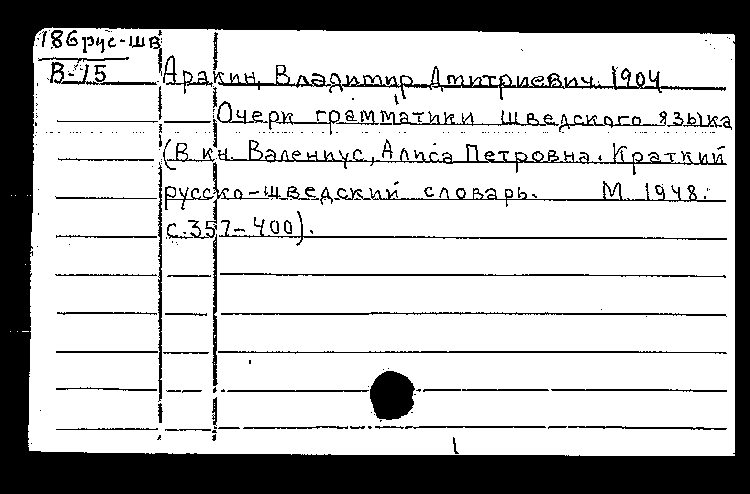 186 рус-шв
В-15
Аракин, Владимир Дмитриевич. 1904
Очерк грамматики шведского языка
(В кн. Валениус, Алиса Петровна. Краткий
русско-шведский словарь. М. 1948.
с.357-400).